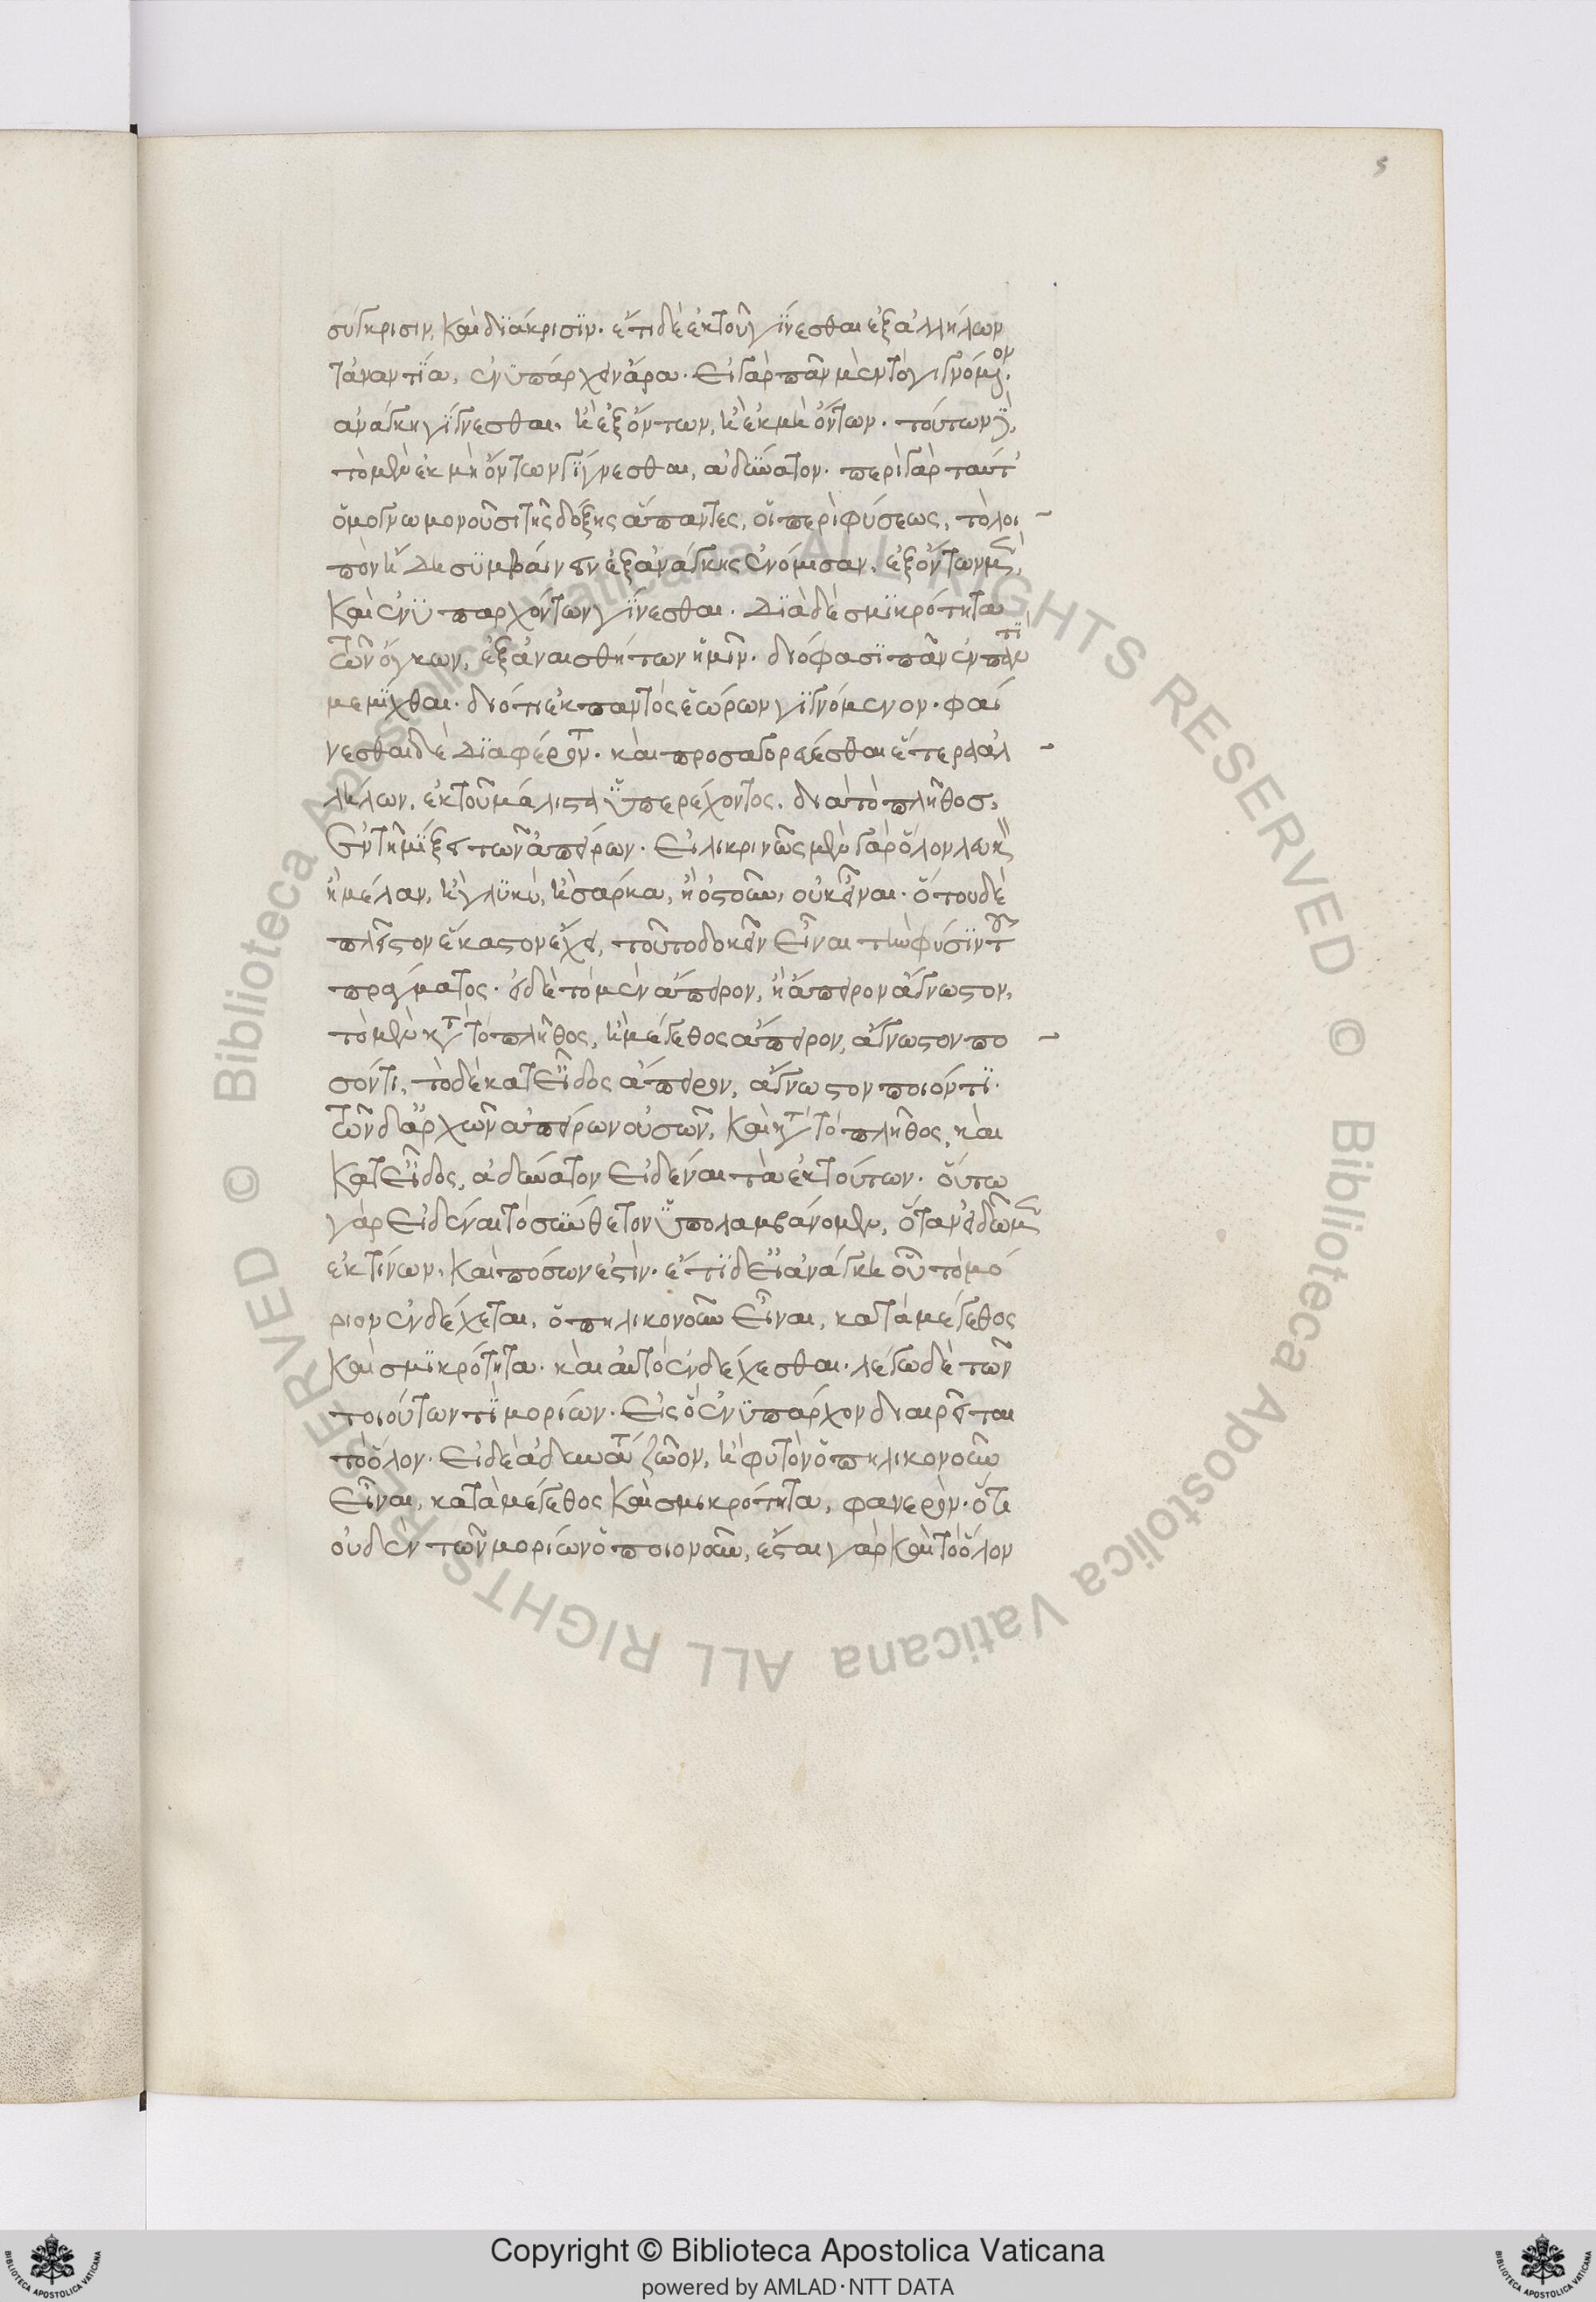 5
σύγκρισιν, καὶ διάκρισϊν. ἔτι δὲ ἐκ τοῦ γίνεσθαι ἐξ ἀλλήλων
τἀναντΐα, ἐνϋπάρχειν ἄρα. εἰ γὰρ πᾶν μὲν τὸ γιγνόμενον.
ἀνάγκη γίγνεσθαι. ἢ ἐξ ὄντων, ἢ ἐκ μὴ ὄντων. τούτων δὲ,
τὸ μὲν ἐκ μὴ ὄντων γίγνεσθαι, ἀδύνατον. περὶ γὰρ ταύτ
ὁμογνωμονοῦσι τῆς δόξης ἅπαντες, οἱ περὶ φύσεως, τὸ λοι
πὸν ἤδη συμβαίνειν ἐξ ἀνάγκης ἐνόμισαν. ἐξ ὄντων μὲν,
καὶ ἐνϋπαρχόντων γίνεσθαι. Διὰ δὲ σμϊκρότητα
τῶν ὄγκων, ἐξ ἀναισθήτων ἡμῖν. διό φασϊ πᾶν ἐν παντὶ
μεμῖχθαι. διότι ἐκ παντὸς ἑώρων γϊγνόμενον. φαί
νεσθαι δὲ Διαφέροντ. καὶ προσαγορεύεσθαι ἕτερα ἀλ
λήλων, ἐκ τοῦ μάλιστα ὑπερέχοντος, διὰ τὸ πλῆθοσ,
ἐν τῇ μίξει τῶν ἀπείρων. Εἰλικρινῶς μὲν γὰρ ὅλον λευκὸν
ἢ μέλαν, ἢ γλϋκὺ, ἢ σάρκα, ἢ ὀστοῦν, οὐκ εἶναι. ὅπου δὲ
πλεῖστον ἕκαστον ἔχει, τοῦτο δοκεῖν εἶναι τὴν φύσϊν τοῦ
πράγματος. εἰ δὲ τὸ μὲν ἄπειρον, ἢ ἄπειρον ἄγνωστον,
τὸ μὲν κατὰ τὸ πλῆθος, ἢ μέγεθος ἄπειρον, ἄγνωστον πο
σόν τι, τὸ δὲ κατ εἶδος ἄπειρον, ἄγνωστον ποιόν τϊ.
τῶν δ ἀρχῶν ἀπείρων οὐσῶν, καὶ κατὰ τὸ πλῆθος, καὶ
κατ εἶδος, ἀδύνατον εἰδέναι τὰ ἐκ τούτων. οὕτω
γὰρ εἰδέναι τὸ σύνθετον ὑπολαμβάνομεν, ὅταν εἰδῶμεν
ἐκ τίνων, καὶ πόσων ἐστίν. ἔτϊ δ εἰ ἀνάγκη οὗ τὸ μό
ριον ἐνδέχεται, ὁπηλικονοῦν εἶναι, κατὰ μέγεθος
καὶ σμϊκρότητα. καὶ αὐτὸ ἐνδέχεσθαι. λέγω δὲ τῶν
τοιούτων τϊ μορίων. εἰς ὃ ἐνϋπάρχον διαιρεῖται
τὸ ὅλον. εἰ δὲ ἀδύνατ ζῶον, ἢ φυτὸν ὁπηλικονοῦν
εἶναι, κατὰ μέγεθος καὶ σμικρότητα, φανερὸν. ὅτι
οὐδὲν τῶν μορίων ὁποιονοῦν, ἔσται γὰρ καὶ τὸ ὅλον
Copyright © Biblioteca Apostolica Vaticana
powered by AMLAD·NTT DATA
© Biblioteca Apostolica Vaticana ALL RIGHTS RESERVED © Biblioteca Apostolica Vaticana ALL RIGHTS RESERVED
BIBLIOTECA APOSTOLICA VATICANA
BIBLIOTECA APOSTOLICA VATICANA